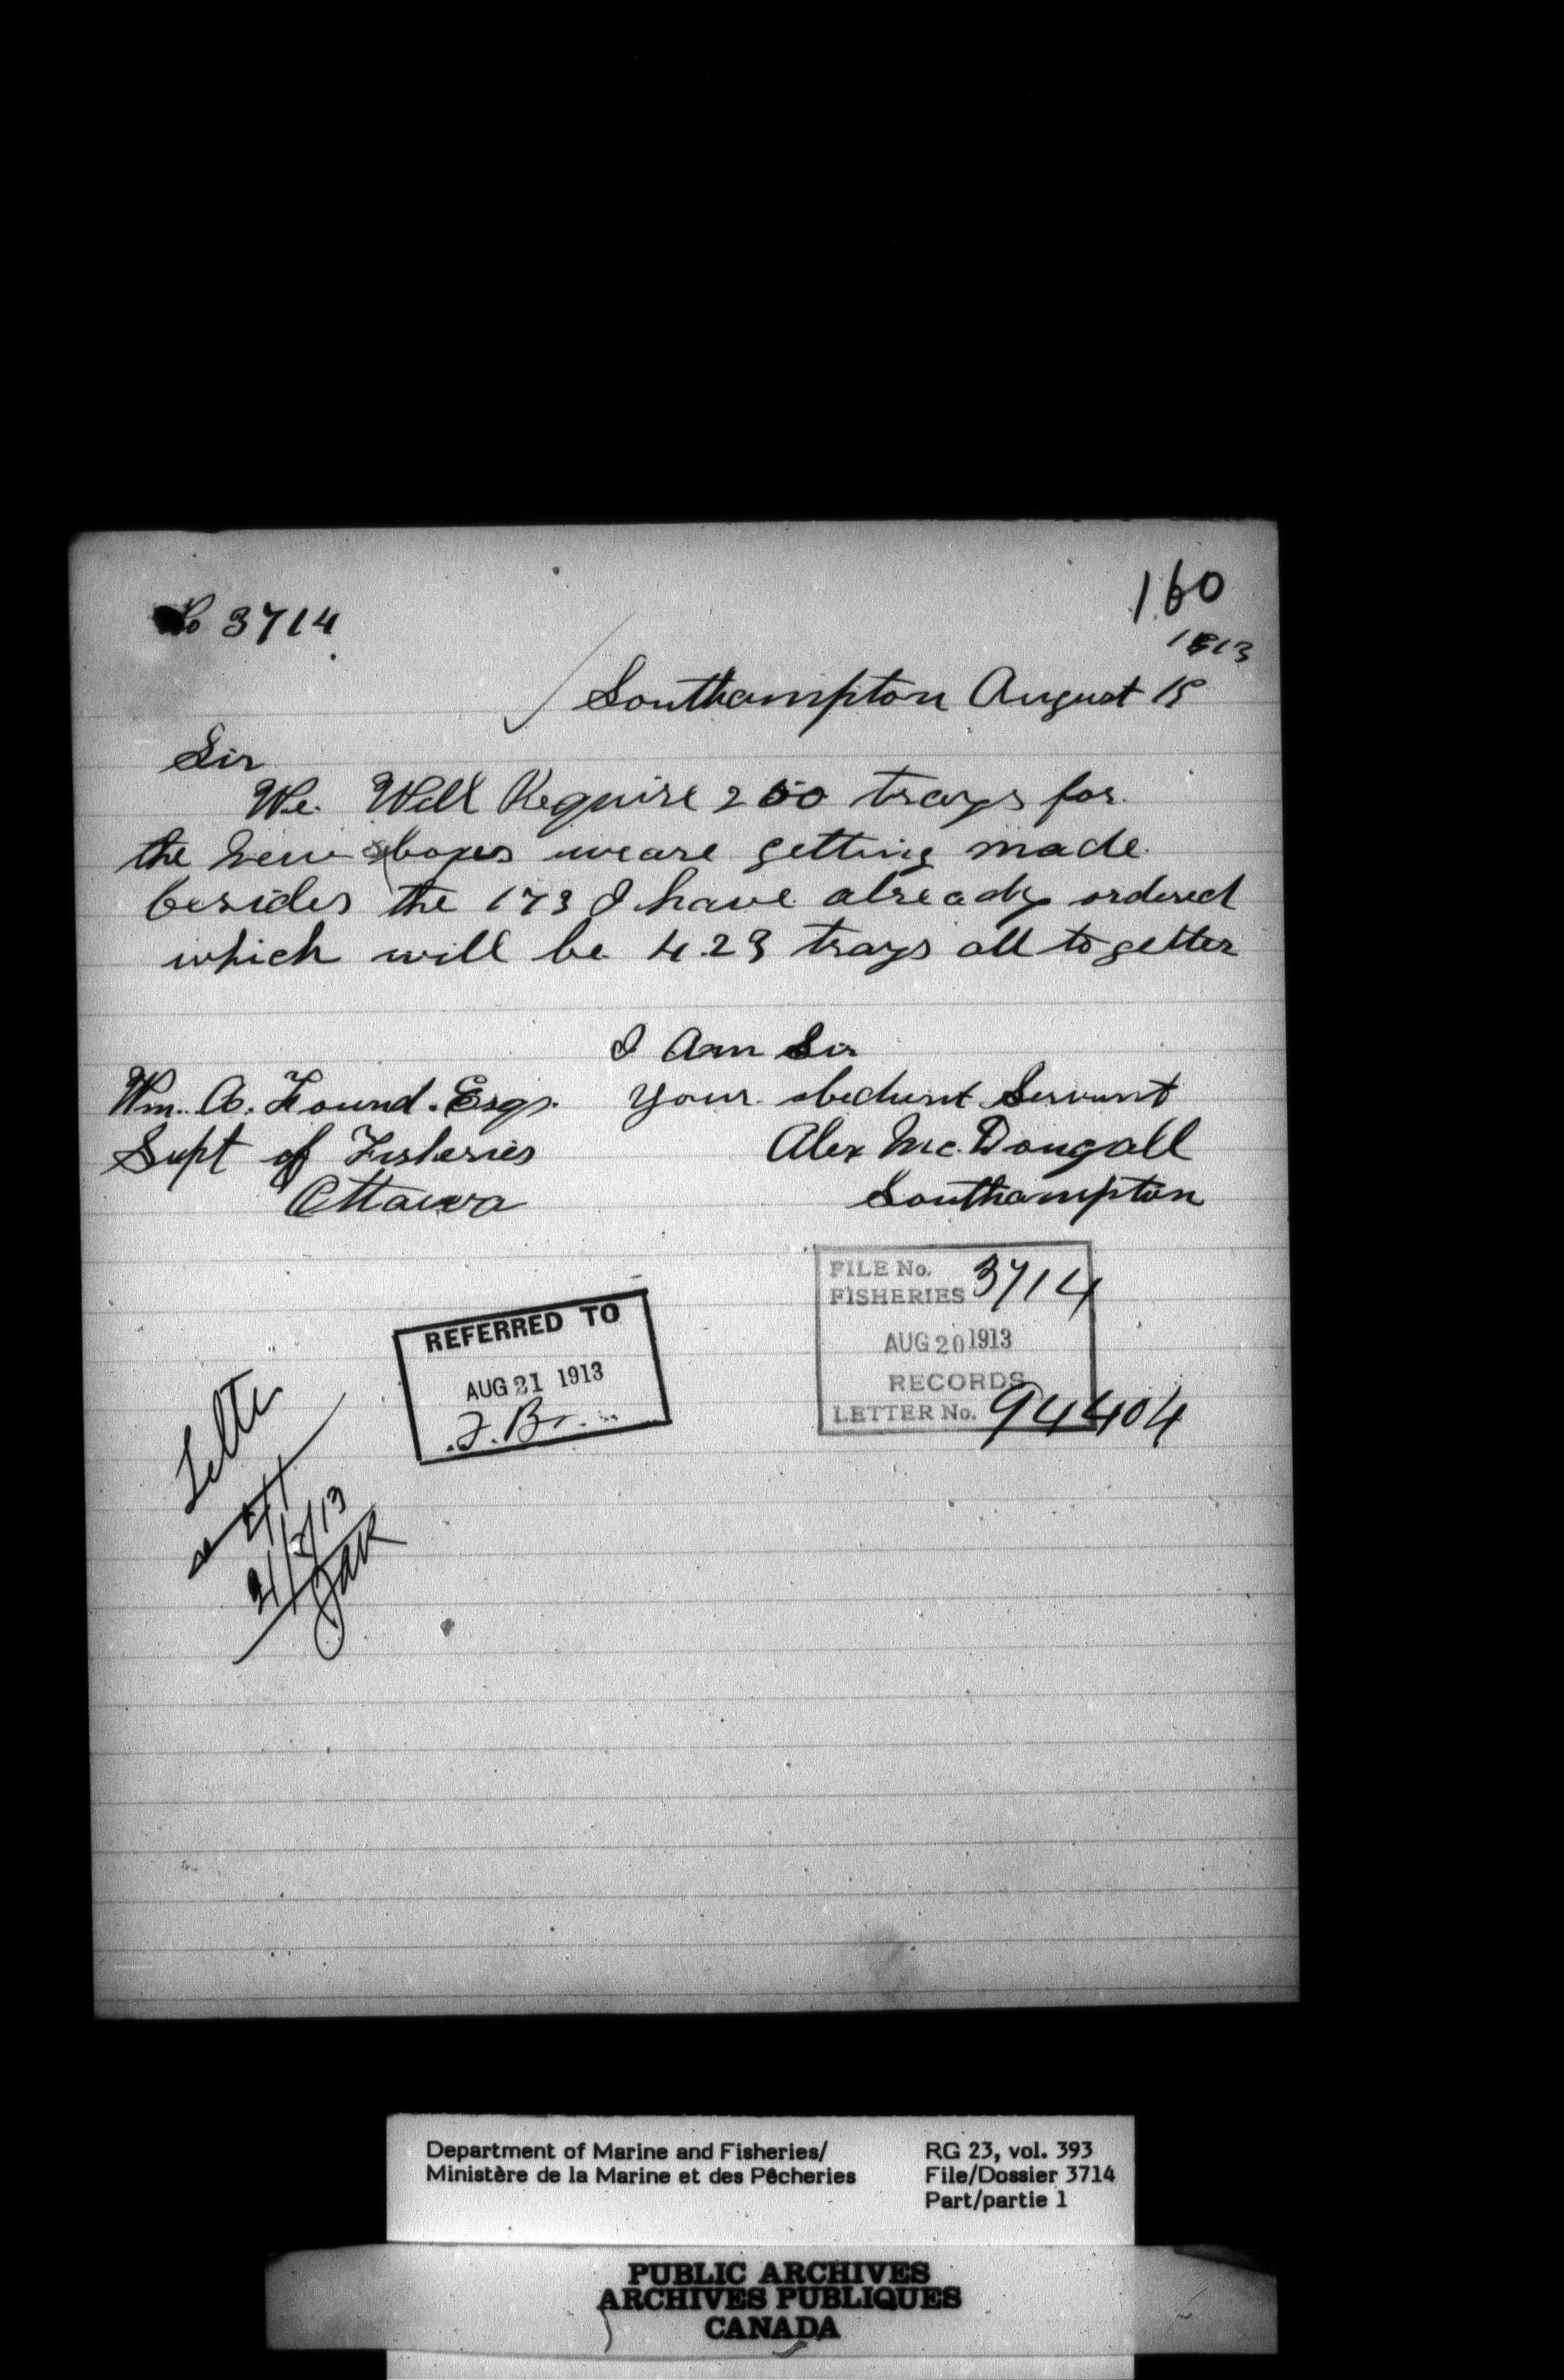 160
No 3714
1913
Southampton August 18
Sir
We. Will Require 250 trays for
the new boxes we are getting made
besides the 173 I have already ordered
which will be 423 trays all togetter
I Am Sir
Wm. A. Found. Esqr. Your obedient Servant
Supt of Fisheries Alex McDougall
Ottawa Southampton
FILE No.
FISHERIES 3714
AUG 20 1913
RECORDS
LETTER No. 94404
REFERRED TO
AUG 21 1913
Letter
21/8/13
Department of Marine and Fisheries/
Ministère de la Marine et des Pêcheries
RG 23, vol. 393
File/Dossier 3714
Part/partie 1
PUBLIC ARCHIVES
ARCHIVES PUBLIQUES
CANADA